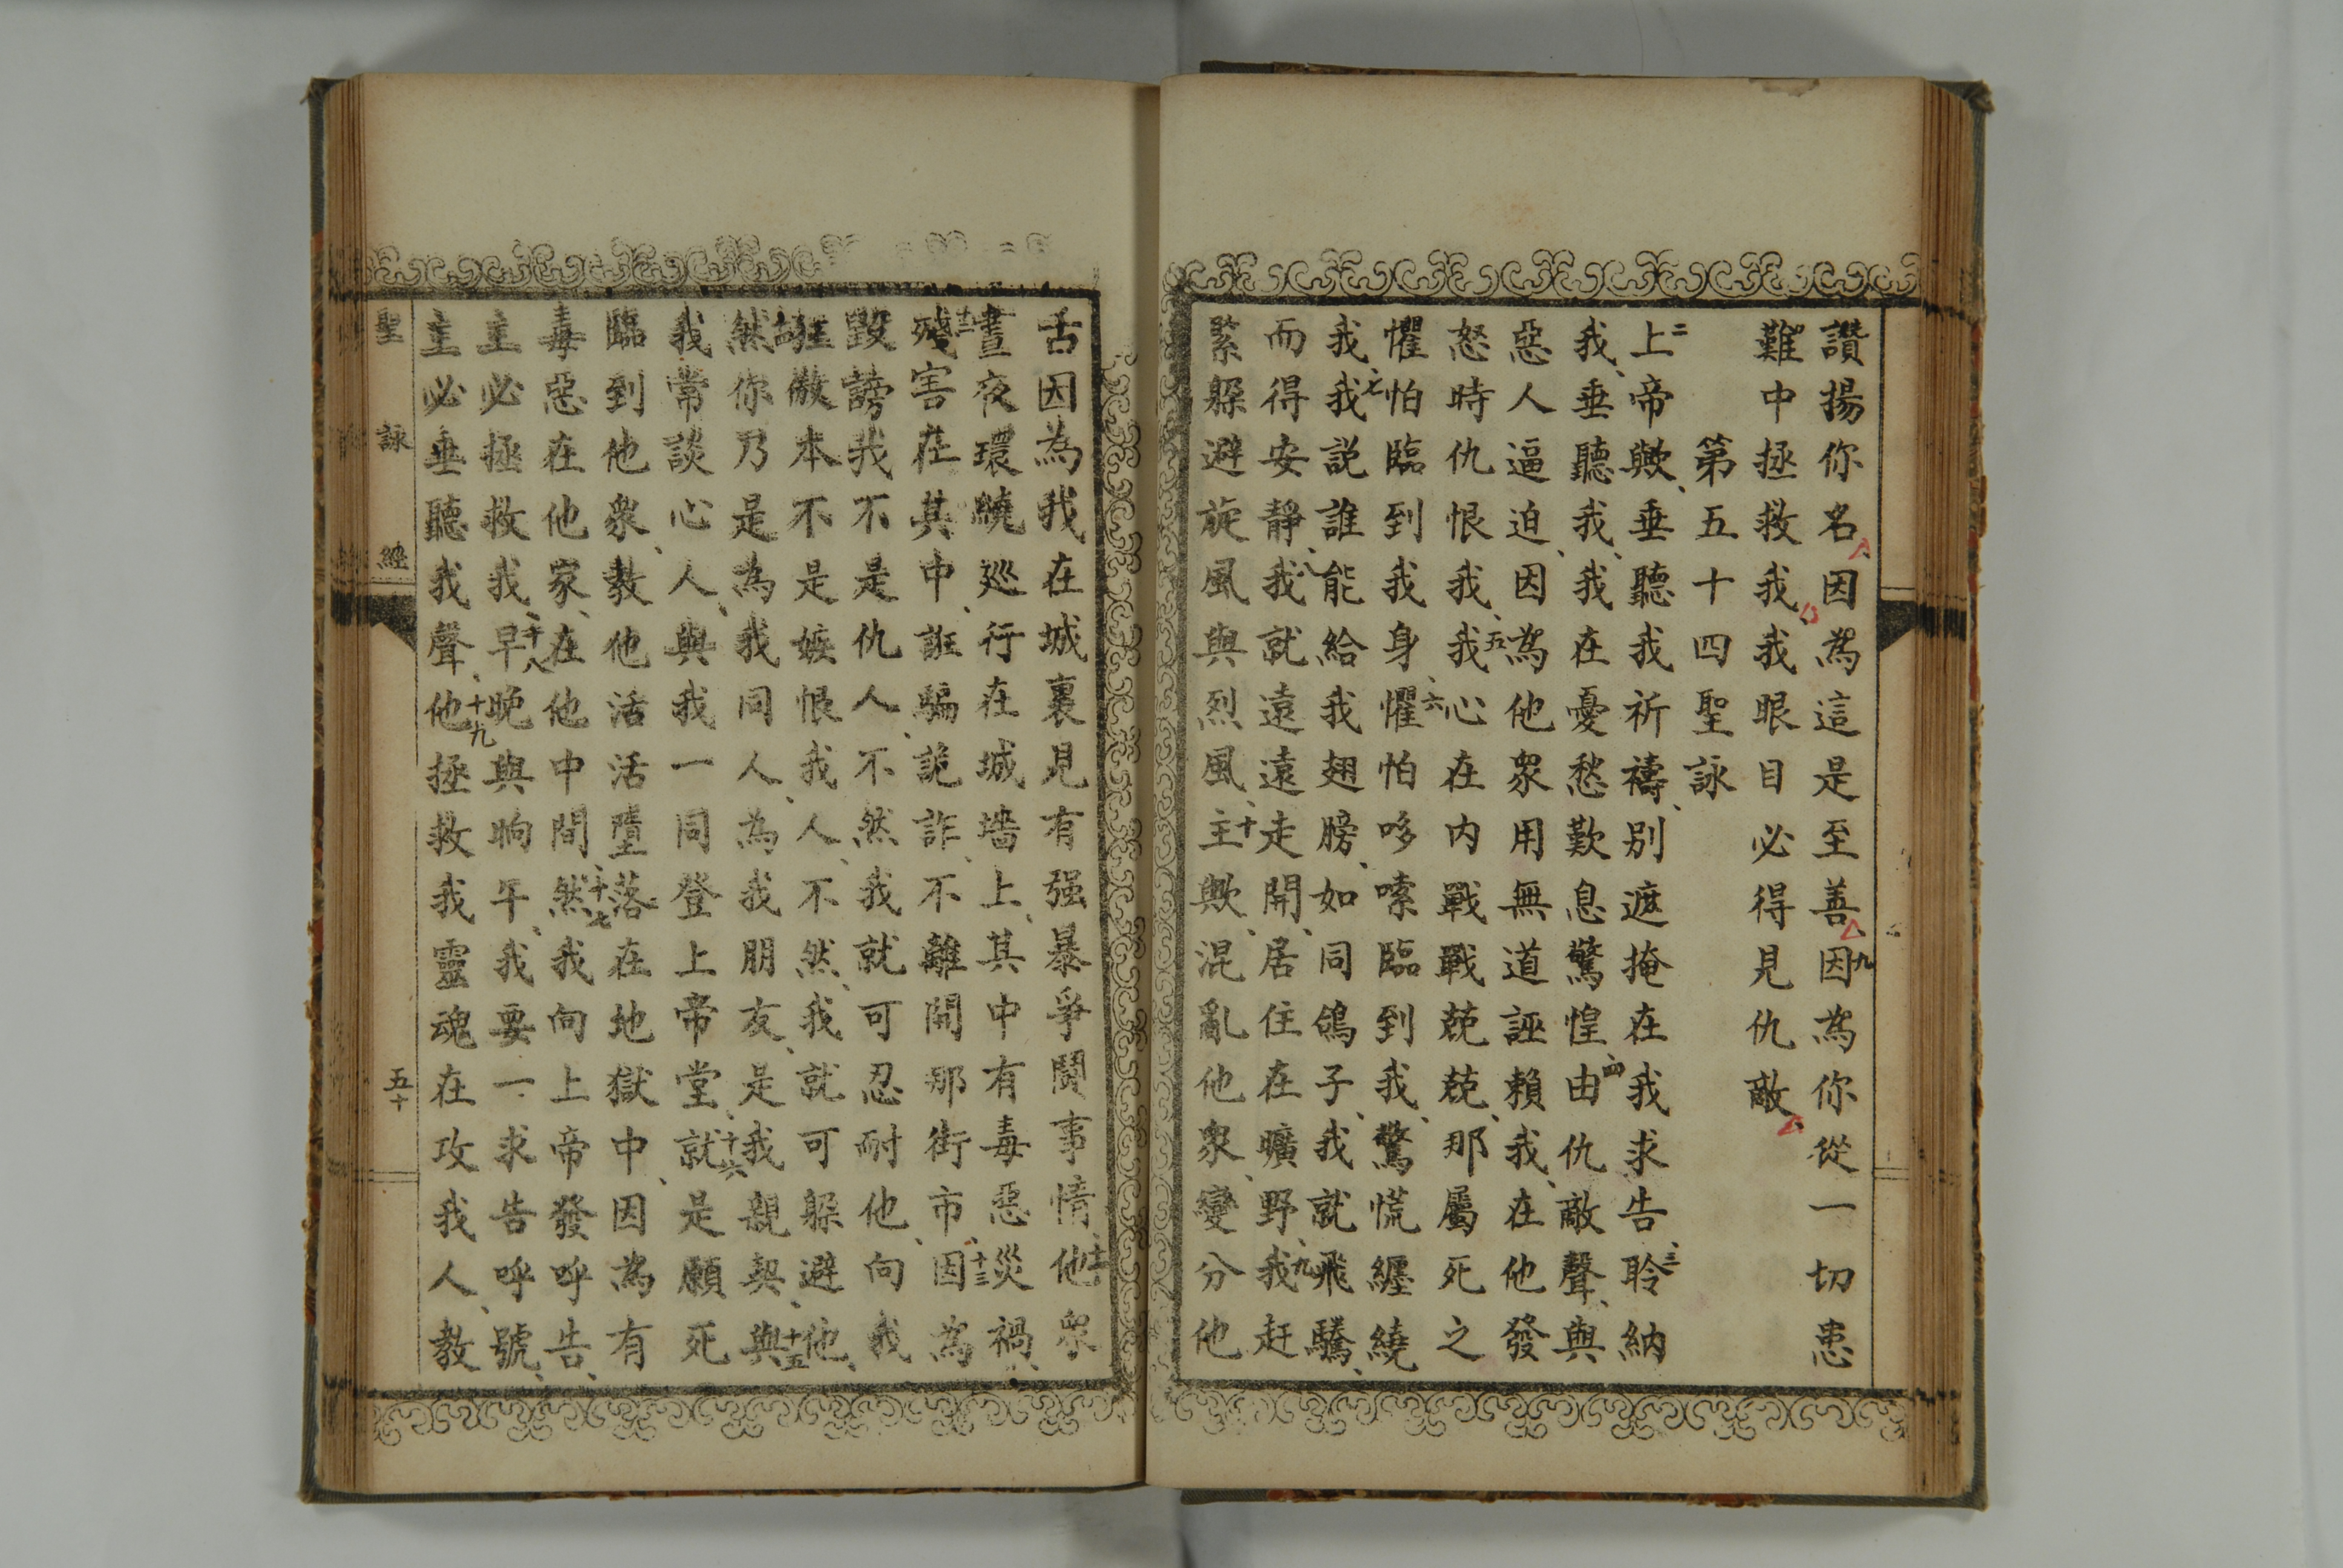 讚揚你名因為這是至善九因為你從一切患
難中拯救我我眼目必得見仇敵
第五十四聖詠
二上帝歟、垂聽我祈禱、別遮掩在我求告、三聆納
我、垂聽我、我在憂愁歎息驚惶、四由仇敵聲、與
惡人逼迫、因為他眾用無道誣賴我、在他發
怒時仇恨我、五我心在內戰戰兢兢、那屬死之
懼怕臨到我身、六懼怕哆嗦臨到我、驚慌纏繞
我、七我説誰能給我翅膀、如同鴿子、我就飛騰、
而得安靜、八我就遠遠走開、居住在曠野、九我赶
緊躱避旋風與烈風、十主歟、混亂他衆、變分他
舌因為我在城裏見有强暴爭鬪事情、十一他衆
晝夜環繞巡行在城墻上、其中有毒惡災禍、
十二殘害在其中、誑騙詭詐、不離開那街市、十三因為
毀謗我不是仇人、不然我就可忍耐他、向我
狂傲本不是嫉恨我人、不然、我就可躱避他、
十四然你乃是為我同人、為我朋友、是我親契、十五與
我常談心人、與我一同登上帝堂、十六就是願死
臨到他衆、教他活活墮落在地獄中、因為有
毒惡在他家、在他中間、十七然我向上帝發呼告、
主必拯救我、十八早晚與晌午、我要一求告呼號、
主必垂聽我聲、十九他拯救我靈魂在攻我人、教
聖詠經
五十